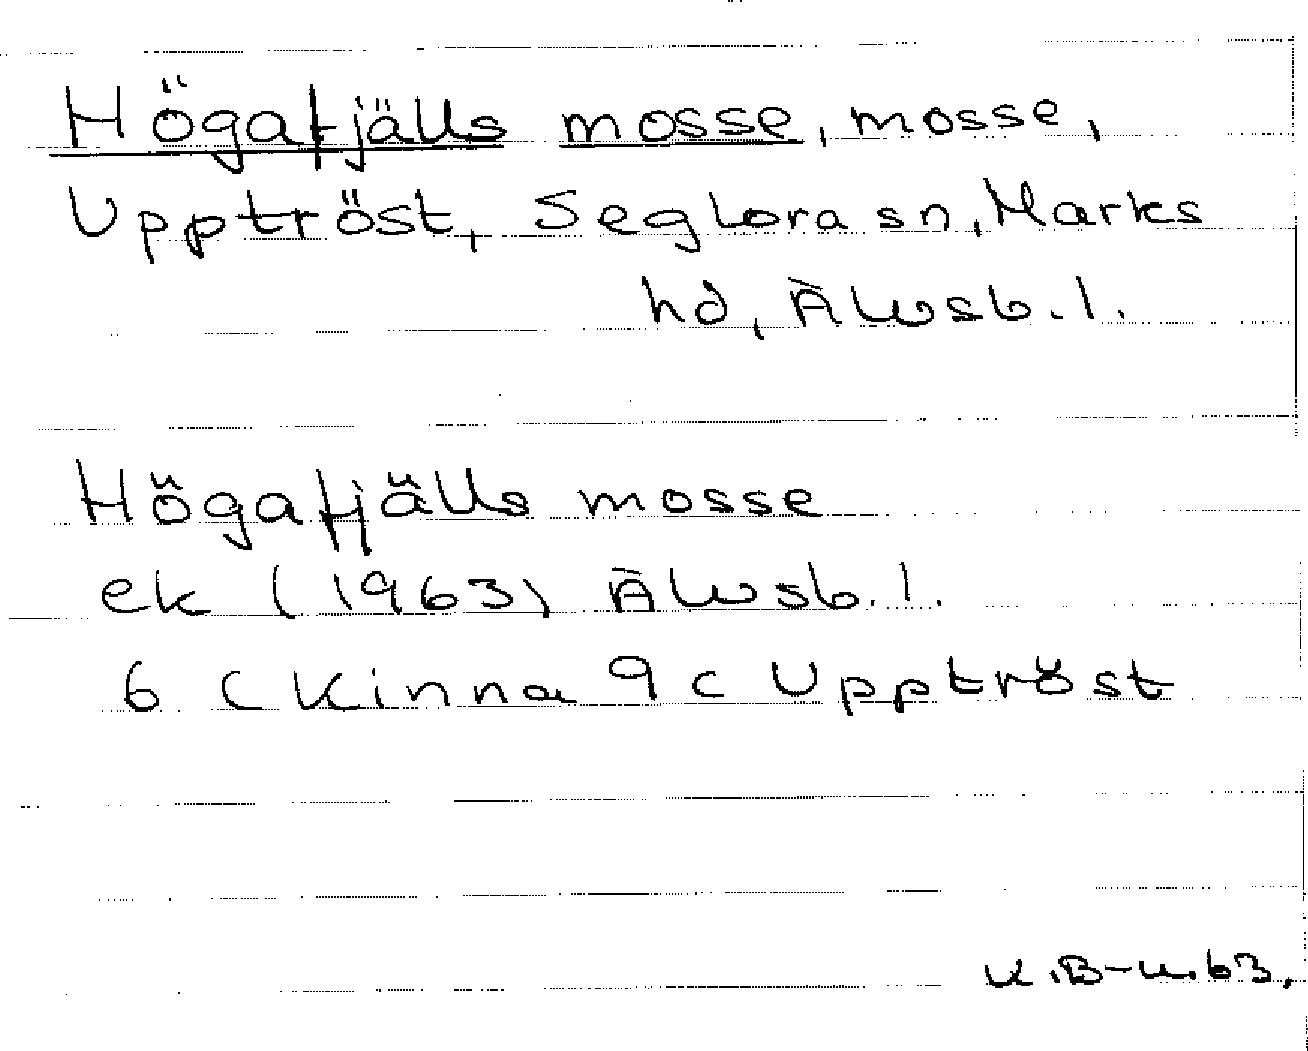 Högafjälls mosse, mosse,
Upptröst, Seglora sn, Marks
hd, Älvsb. l.
Högafjälls mosse
ek (1963) Älvsb. l.
6 C Kinna 9 c Upptröst
K.B-n.63.